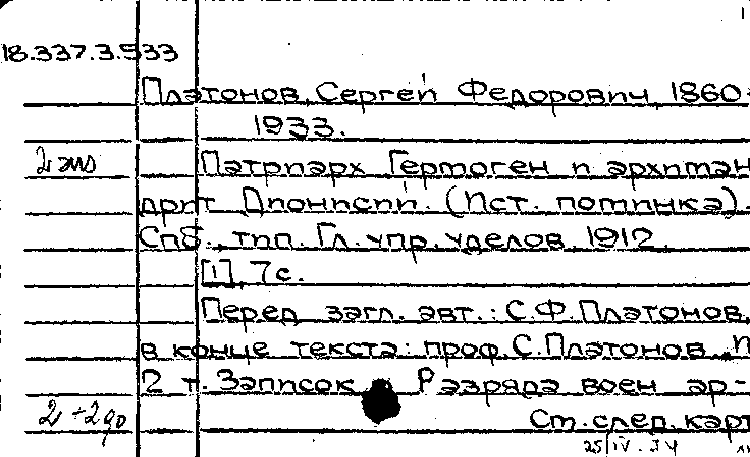 1
18.337.3.533
Платонов, Сергей Федорович, 1860-
1933.
2 экз Патриарх Гермоген и архиман
дрит Дионисий. (Ист. поминка).
Спб., тип. Гл. упр. уделов, 1912.
[1], 7с.
Перед загл. авт.: С.Ф. Платонов,
в конце текста: проф. С. Платонов. И
2 т. Записок Разряда воен ар-
Ст. след. карт
25/IV.